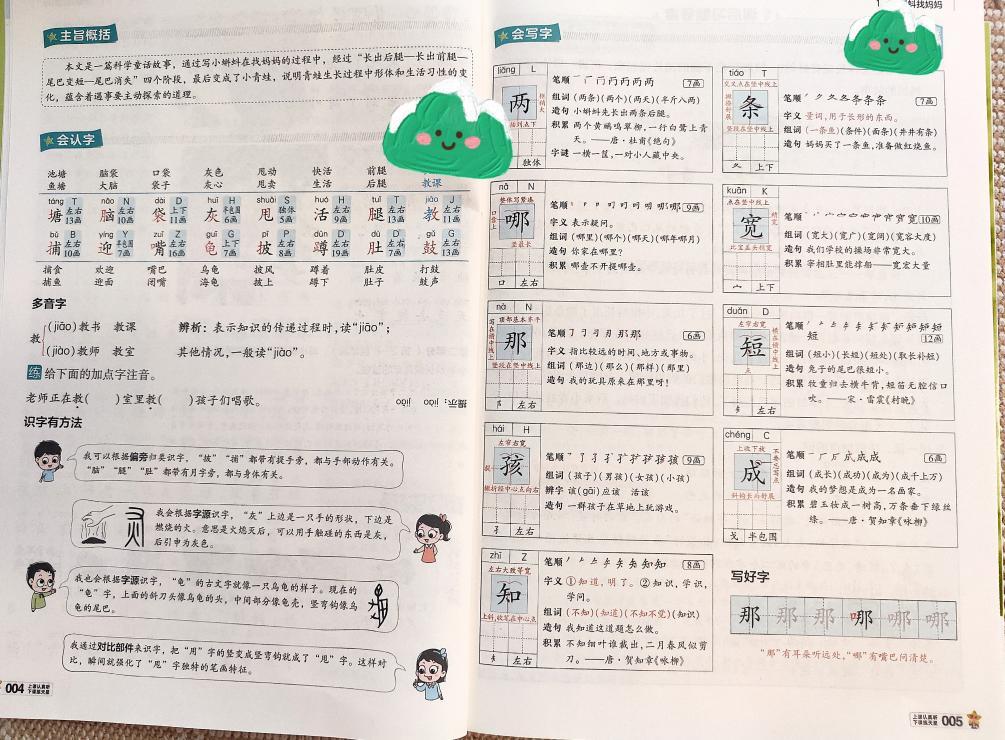 主旨概括
本文是一篇科学童话故事，通过写小蝌蚪在找妈妈的过程中，经过“长出后腿—长出前腿—
尾巴变短—尾巴消失”四个阶段，最后变成了小青蛙，说明青蛙生长过程中形体和生活习性的变
化，蕴含着遇事要主动探索的道理。
会认字
池塘 脑袋 口袋 灰色 甩动 快活 前腿
鱼塘 大脑 袋子 灰心 甩卖 生活 后腿 教课
táng T nǎo N dài D huī H shuǎi S huó H tuǐ T jiāo J
塘 左右 13画 脑 左右 10画 袋 上下 11画 灰 半包围 6画 甩 独体 5画 活 左右 9画 腿 左右 13画 教 左右 11画
bǔ B yíng Y zuǐ Z guī G pī P dūn D dù D gǔ G
捕 左右 10画 迎 半包围 7画 嘴 左右 16画 龟 上下 7画 披 左右 8画 蹲 左右 19画 肚 左右 7画 鼓 左右 13画
捕食 欢迎 嘴巴 乌龟 披风 蹲着 肚皮 打鼓
捕鱼 迎面 闭嘴 海龟 披上 蹲下 肚子 鼓声
多音字
教
(jiāo)教书 教课 辨析：表示知识的传递过程时，读“jiāo”；
(jiào)教师 教室 其他情况，一般读“jiào”。
练 给下面的加点字注音。
老师正在教( )室里教( )孩子们唱歌。 提示：jiāo jiào
识字有方法
我可以根据偏旁归类识字，“披”“捕”都带有提手旁，都与手部动作有关。
“脑”“腿”“肚”都带有月字旁，都与身体有关。
我会根据字源识字，“灰”上边是一只手的形状，下边是
燃烧的火。意思是火熄灭后，可以用手触碰的东西是灰，
后引申为灰色。
我也会根据字源识字，“龟”的古文字就像一只乌龟的样子。现在的
“龟”字，上面的斜刀头像乌龟的头，中间部分像龟壳，竖弯钩像乌
龟的尾巴。
我通过对比部件来识字，把“用”字的竖变成竖弯钩就成了“甩”字。这样对
比，瞬间就强化了“甩”字独特的笔画特征。
004 上课认真听
下课练天星
蚪找妈妈
会写字
liǎng L
两
独体
笔顺 7画
组词 (两条)(两个)(两天)(半斤八两)
造句 小蝌蚪先长出两条后腿。
积累 两个黄鹂鸣翠柳，一行白鹭上青
天。——唐·杜甫《绝句》
字谜 一横一筐，一对小人藏中央。
nǎ N
哪
口 左右
笔顺 9画
字义 表示疑问。
组词 (哪里)(哪个)(哪天)(哪年哪月)
造句 你家在哪里？
积累 哪壶不开提哪壶。
nà N
那
阝 左右
笔顺 6画
字义 指比较远的时间、地方或事物。
组词 (那边)(那么)(那样)(那里)
造句 我的玩具原来在那里呀！
hái H
孩
左窄右宽
孑 左右
笔顺 9画
组词 (孩子)(男孩)(女孩)(小孩)
辨字 该(gāi)应该 活该
造句 一群孩子在草地上玩游戏。
zhī Z
知
左右大致等宽
左右
笔顺 8画
字义 ①知道，明了。②知识，学识，
学问。
组词 (不知)(知道)(不知不觉)(知识)
造句 我知道这道题怎么做。
积累 不知细叶谁裁出，二月春风似剪
刀。——唐·贺知章《咏柳》
tiáo T
条
夂 上下
笔顺 7画
字义 量词，用于长形的东西。
组词 (一条鱼)(条件)(面条)(井井有条)
造句 妈妈买了一条鱼，准备做红烧鱼。
kuān K
宽
宀 上下
笔顺 10画
组词 (宽大)(宽广)(宽阔)(宽容大度)
造句 我们学校的操场非常宽大。
积累 宰相肚里能撑船——宽宏大量
duǎn D
短
左窄右宽
左右
笔顺 12画
组词 (短小)(长短)(短处)(取长补短)
造句 兔子的尾巴很短小。
积累 牧童归去横牛背，短笛无腔信口
吹。——宋·雷震《村晚》
chéng C
成
戈 半包围
笔顺 6画
组词 (成长)(成功)(成为)(成千上万)
造句 我的梦想是成为一名画家。
积累 碧玉妆成一树高，万条垂下绿丝
绦。——唐·贺知章《咏柳》
写好字
那 那 那 哪 哪 哪
“那”有耳朵听远处，“哪”有嘴巴问清楚。
上课认真听
下课练天星 005